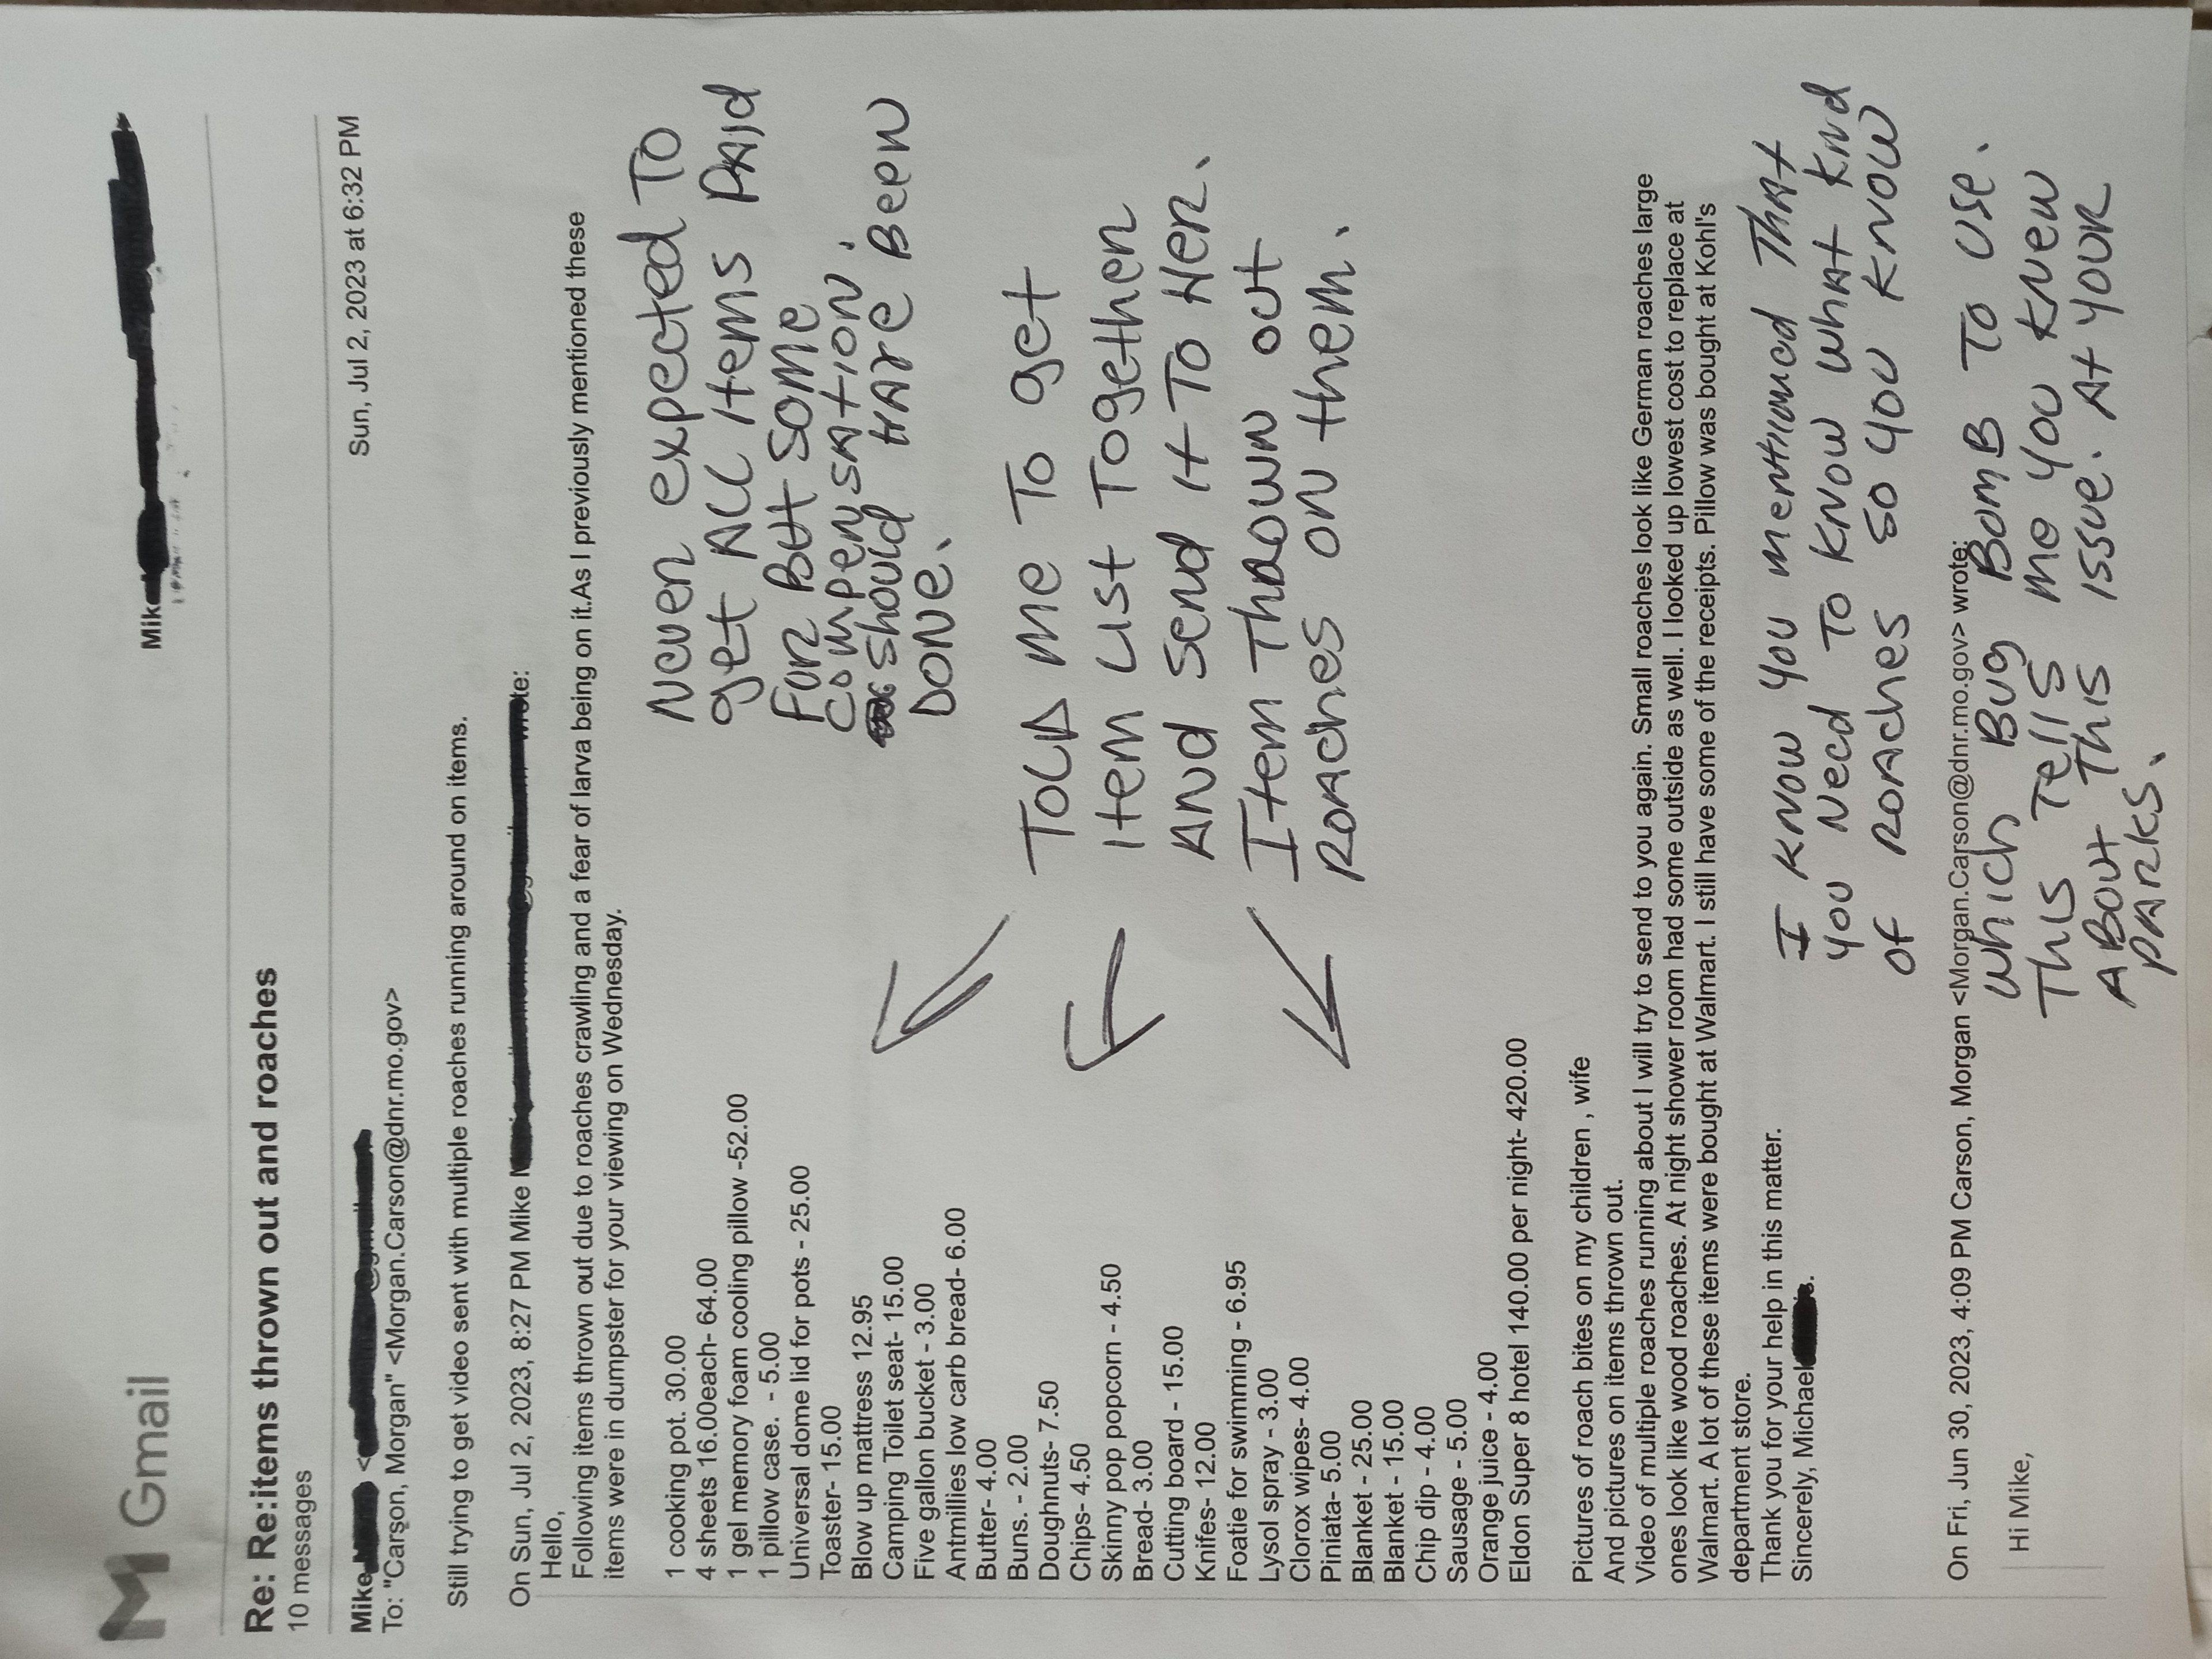 M Gmail
Mike
Re: Re:items thrown out and roaches
10 messages
Mike
Sun, Jul 2, 2023 at 6:32 PM
To: "Carson, Morgan" <Morgan.Carson@dnr.mo.gov>
Still trying to get video sent with multiple roaches running around on items.
On Sun, Jul 2, 2023, 8:27 PM Mike wrote:
Hello,
Following items thrown out due to roaches crawling and a fear of larva being on it.As I previously mentioned these
items were in dumpster for your viewing on Wednesday.
1 cooking pot. 30.00
4 sheets 16.00each- 64.00
1 gel memory foam cooling pillow -52.00
1 pillow case. - 5.00
Universal dome lid for pots - 25.00
Toaster- 15.00
Blow up mattress 12.95
Camping Toilet seat- 15.00
Five gallon bucket - 3.00
Antmillies low carb bread- 6.00
Butter- 4.00
Buns. - 2.00
Doughnuts- 7.50
Chips- 4.50
Skinny pop popcorn - 4.50
Bread- 3.00
Cutting board - 15.00
Knifes- 12.00
Foatie for swimming - 6.95
Lysol spray - 3.00
Clorox wipes- 4.00
Piniata- 5.00
Blanket - 25.00
Blanket - 15.00
Chip dip - 4.00
Sausage - 5.00
Orange juice - 4.00
Eldon Super 8 hotel 140.00 per night- 420.00
Never expected To
get ALL Items PAID
For But some
compensation.
should HAVE Been
DONE.
TOLD me To get
Item List Together
And Send It To Her.
Item Thrown out
Roaches on them.
Pictures of roach bites on my children , wife
And pictures on items thrown out.
Video of multiple roaches running about I will try to send to you again. Small roaches look like German roaches large
ones look like wood roaches. At night shower room had some outside as well. I looked up lowest cost to replace at
Walmart. A lot of these items were bought at Walmart. I still have some of the receipts. Pillow was bought at Kohl's
department store.
Thank you for your help in this matter.
Sincerely, Michael
I KNOW YOU mentioned THAT
YOU Need To KNOW WHAT Kind
OF ROACHES SO YOU KNOW
which Bug BomB To USE.
THIS Tells me YOU KNEW
ABOUT THIS ISSUE. At YOUR
PARKS.
On Fri, Jun 30, 2023, 4:09 PM Carson, Morgan <Morgan.Carson@dnr.mo.gov> wrote:
Hi Mike,